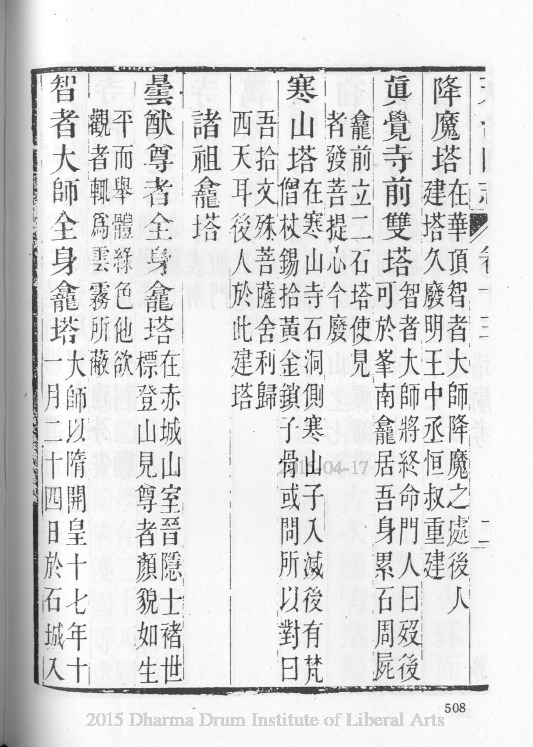 卷十三 二
降魔塔在華頂智者大師降魔之處後人
建塔久廢明王中丞恒叔重建
眞覺寺前雙塔智者大師將終命門人曰歿後
可於峯南龕居吾身累石周屍
龕前立二石塔使見
者發菩提心今廢
寒山塔在寒山寺石洞側寒山子入滅後有梵
僧杖錫拾黃金鎖子骨或問所以對曰
吾拾文殊菩薩舍利歸
西天耳後人於此建塔
諸祖龕塔
曇猷尊者全身龕塔在赤城山室晉隱士褚世
標登山見尊者顏貌如生
平而舉體綠色他欲
觀者輒爲雲霧所蔽
智者大師全身龕塔大師以隋開皇十七年十
一月二十四日於石城入
2015-04-17
508
2015 Dharma Drum Institute of Liberal Arts